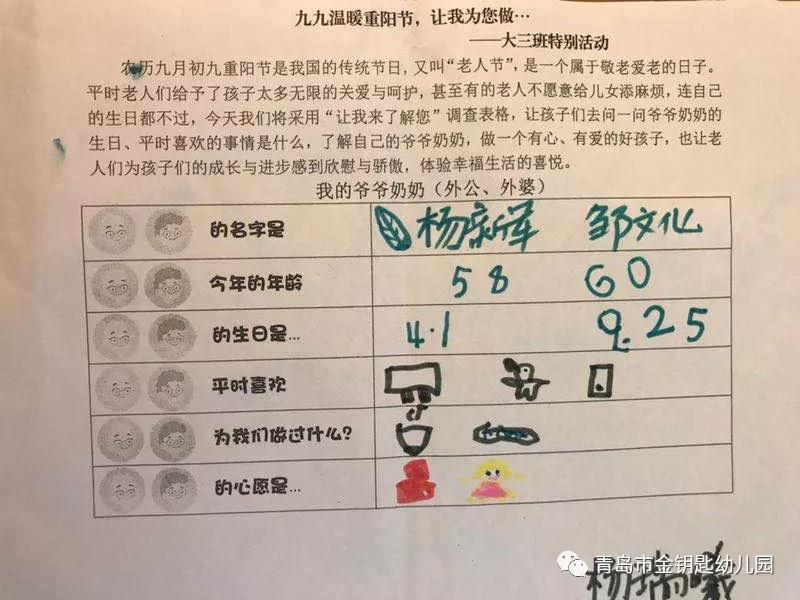 九九温暖重阳节，让我为您做…
——大三班特别活动
农历九月初九重阳节是我国的传统节日，又叫“老人节”，是一个属于敬老爱老的日子。
平时老人们给予了孩子太多无限的关爱与呵护，甚至有的老人不愿意给儿女添麻烦，连自己
的生日都不过，今天我们将采用“让我来了解您”调查表格，让孩子们去问一问爷爷奶奶的
生日、平时喜欢的事情是什么，了解自己的爷爷奶奶，做一个有心、有爱的好孩子，也让老
人们为孩子们的成长与进步感到欣慰与骄傲，体验幸福生活的喜悦。
我的爷爷奶奶（外公、外婆）
的名字是 杨新军 邹文化
今年的年龄 58 60
的生日是… 4.1 9.25
平时喜欢
为我们做过什么？
的心愿是…
青岛市金钥匙幼儿园
杨瑞曦